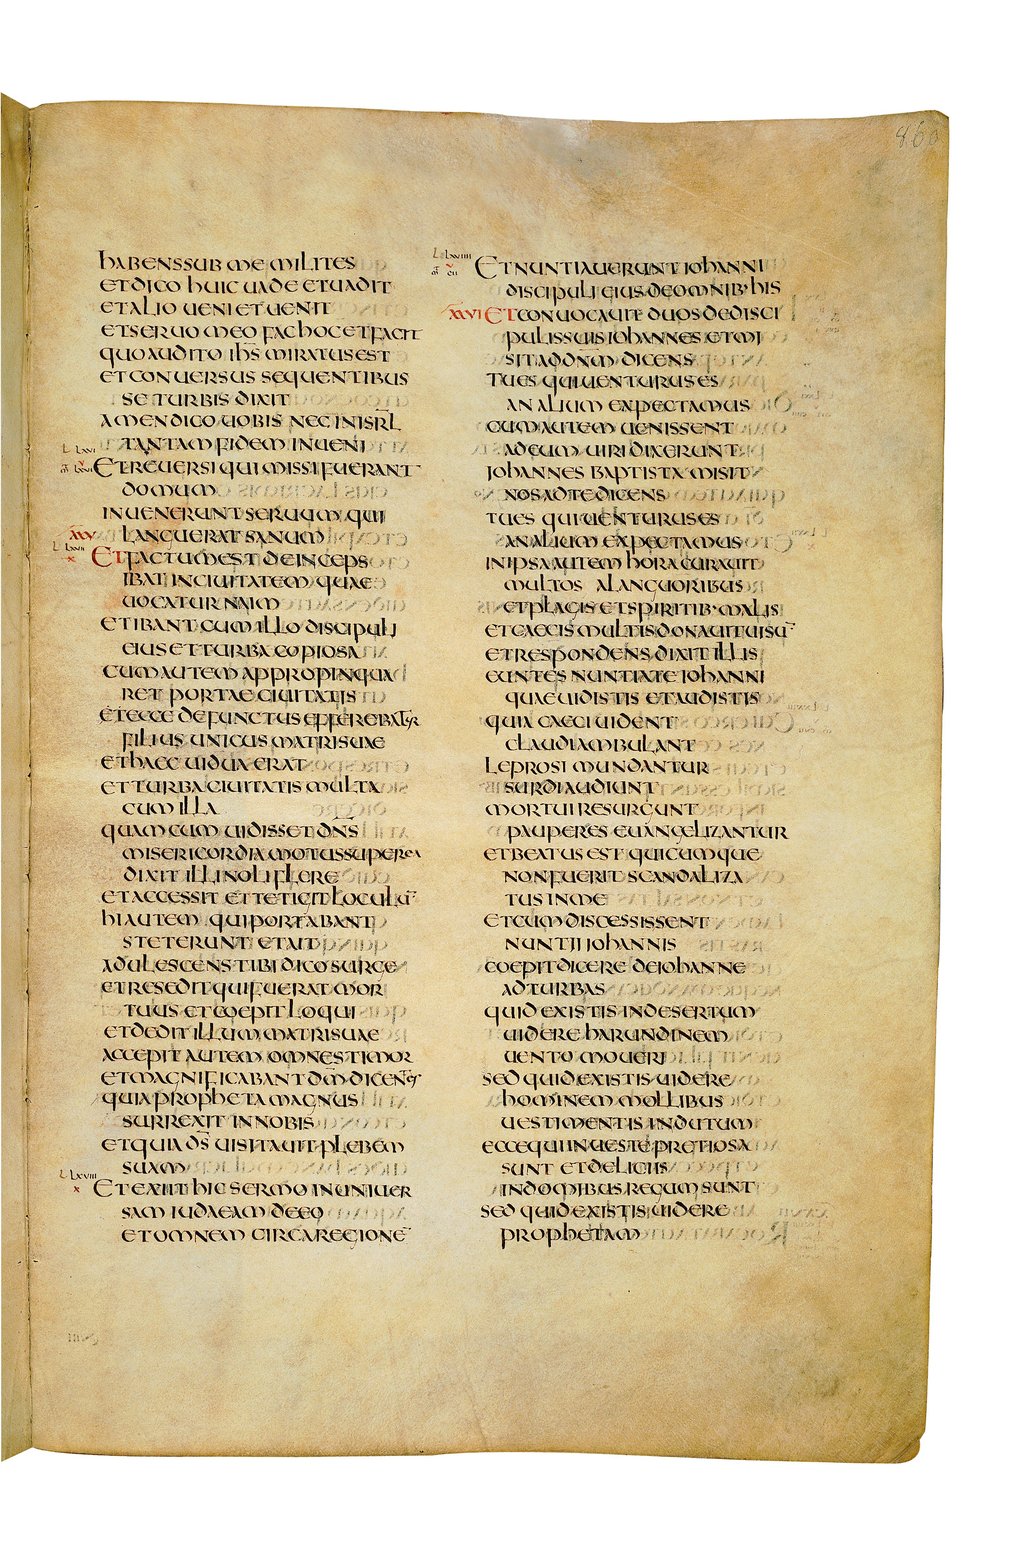 860
habens sub me milites
et dico huic uade et uadit
et alio ueni et uenit
et seruo meo fac hoc et facit
quo audito ih̅s miratus est
et conuersus sequentibus
se turbis dixit
amen dico uobis nec in isrl̅
tantam fidem inueni
L LXVI
M LXVI
et reuersi qui missi fuerant
domum
inuenerunt seruum qui
XXV
languerat sanum
L LXVII
X
et factum est deinceps
ibat in ciuitatem quae
uocatur naim
et ibant cum illo discipuli
eius et turba copiosa
cum autem appropinqua
ret portae ciuitatis
et ecce defunctus efferebatur
filius unicus matris suae
et haec uidua erat
et turba ciuitatis multa
cum illa
quam cum uidisset dn̅s
misericordia motus super ea
dixit illi noli flere
et accessit et tetigit loculu̅
hi autem qui portabant
steterunt et ait
adulescens tibi dico surge
et resedit qui fuerat mor
tuus et coepit loqui
et dedit illum matri suae
accepit autem omnes timor
et magnificabant dm̅ dicentes
quia propheta magnus
surrexit in nobis
et quia ds̅ uisitauit plebem
suam
L LXVIII
X
et exiit hic sermo in uniuer
sam iudaeam de eo
et omnem circa regione̅
L LXVIIII
M V CII
et nuntiauerunt iohanni
discipuli eius de omnib· his
XXVI et conuocauit duos de disci
pulis suis iohannes et mi
sit ad dnm̅ dicens
tu es qui uenturus es
an alium expectamus
cum autem uenissent
ad eum uiri dixerunt
iohannes baptista misit
nos ad te dicens
tu es qui uenturus es
an alium expectamus
in ipsa autem hora curauit
multos a languoribus
et plagis et spiritib· malis
et caecis multis donauit uisu̅
et respondens dixit illis
euntes nuntiate iohanni
quae uidistis et audistis
quia caeci uident
claudi ambulant
leprosi mundantur
surdi audiunt
mortui resurgunt
pauperes euangelizantur
et beatus est quicumque
non fuerit scandaliza
tus in me
et cum discessissent
nuntii iohannis
coepit dicere de iohanne
ad turbas
quid existis in desertum
uidere harundinem
uento moueri
sed quid existis uidere
hominem mollibus
uestimentis indutum
ecce qui in ueste pretiosa
sunt et deliciis
in domibus regum sunt
sed quid existis uidere
prophetam